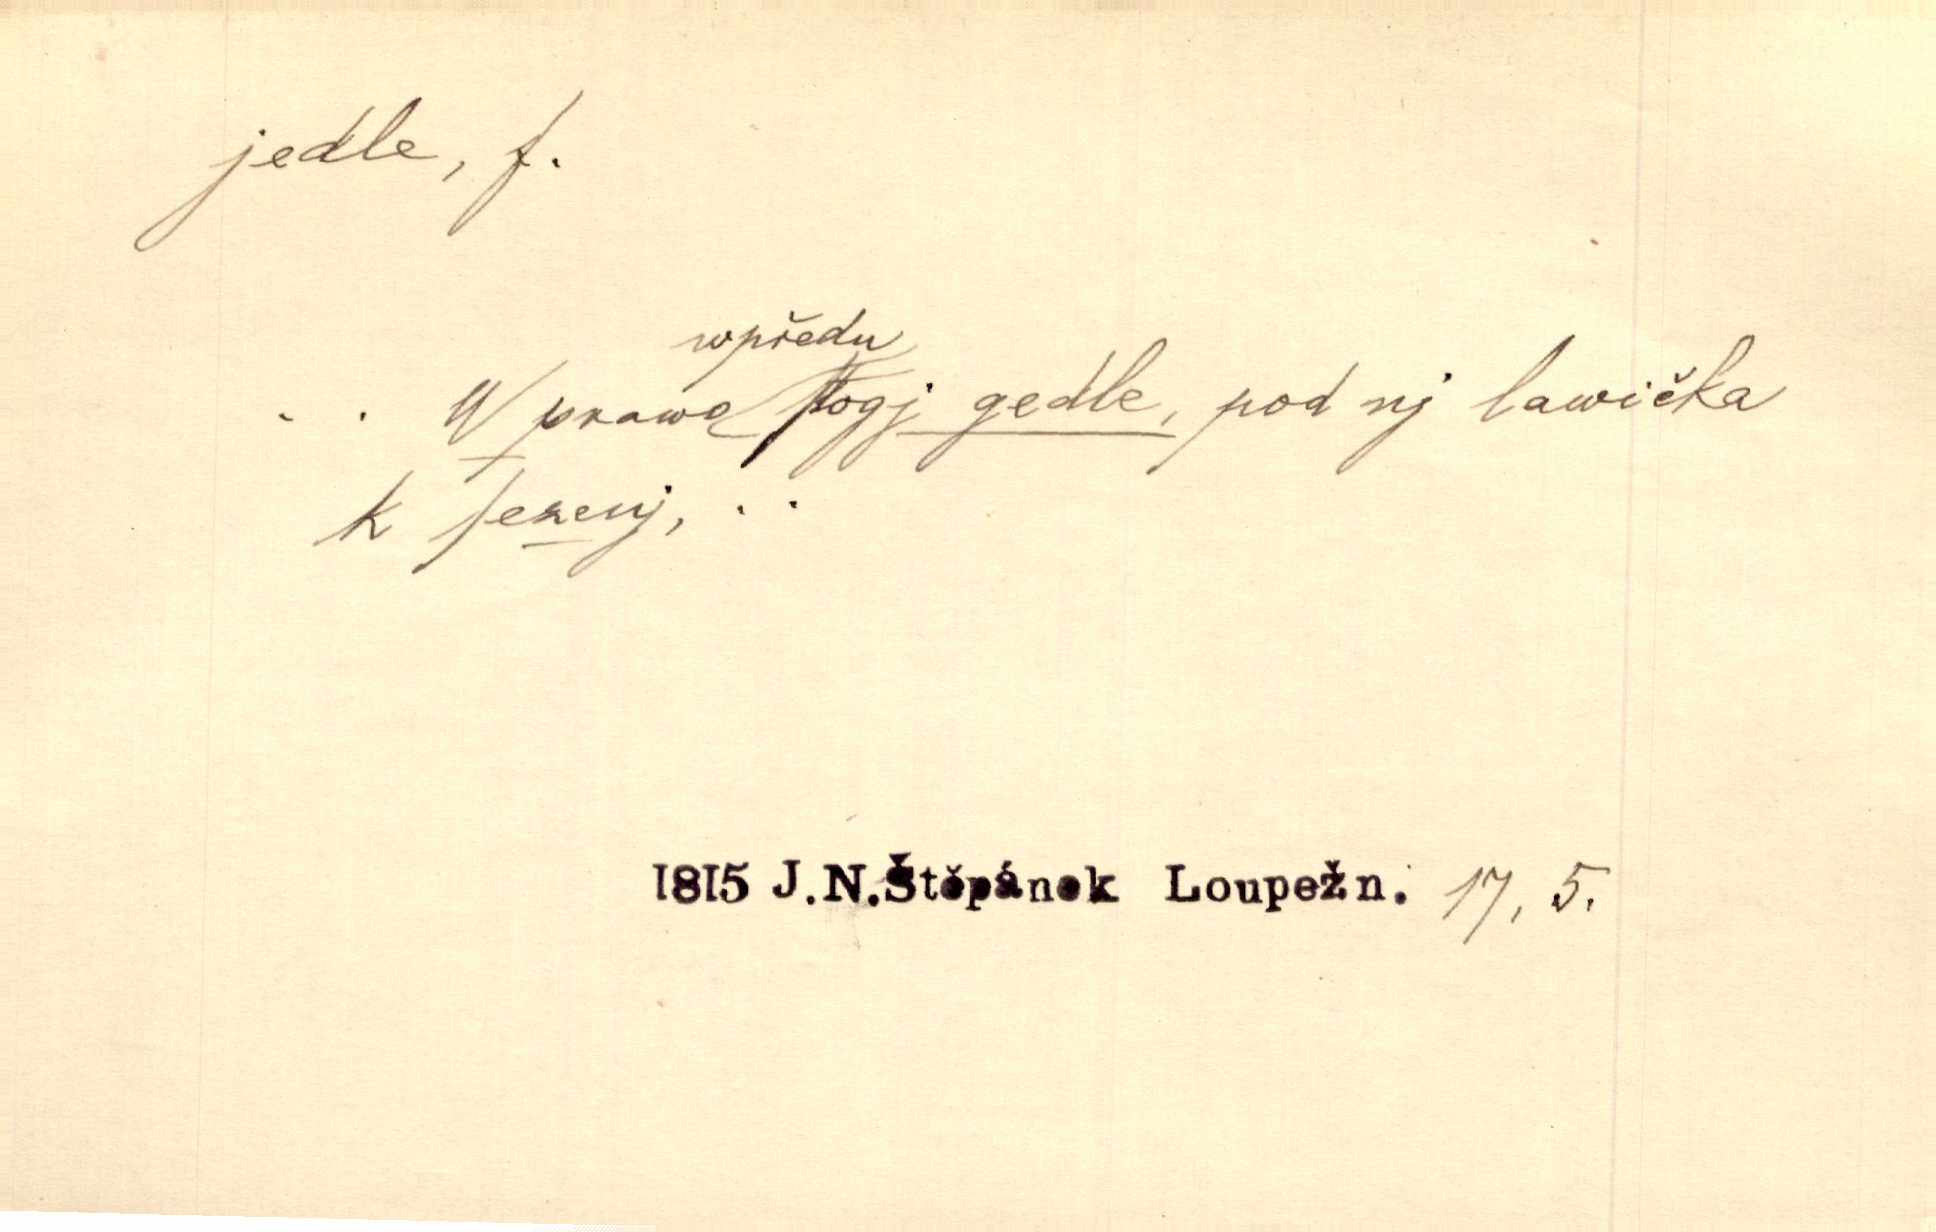 jedle, f.
wpředu
. . W prawo ſtogj gedle, pod nj lawička
k ſezenj, . .
1815 J.N.Štěpánek Loupežn. 17, 5.